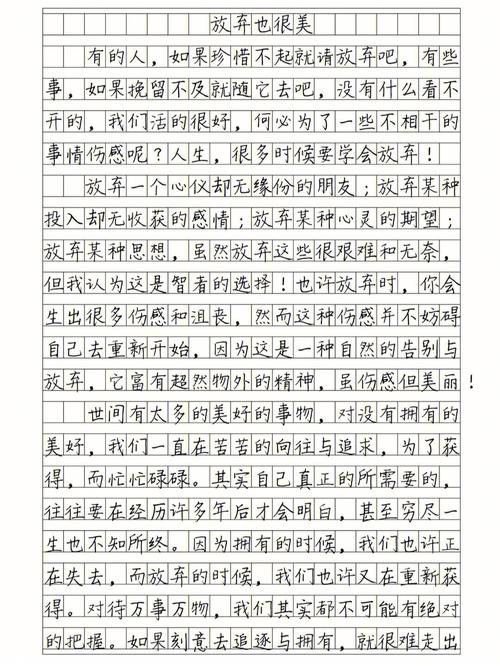 放弃也很美
有的人，如果珍惜不起就请放弃吧，有些
事，如果挽留不及就随它去吧，没有什么看不
开的，我们活的很好，何必为了一些不相干的
事情伤感呢？人生，很多时候要学会放弃！
放弃一个心仪却无缘份的朋友；放弃某种
投入却无收获的感情；放弃某种心灵的期望；
放弃某种思想，虽然放弃这些很艰难和无奈，
但我认为这是智者的选择！也许放弃时，你会
生出很多伤感和沮丧，然而这种伤感并不妨碍
自己去重新开始，因为这是一种自然的告别与
放弃，它富有超然物外的精神，虽伤感但美丽！
世间有太多的美好的事物，对没有拥有的
美好，我们一直在苦苦的向往与追求，为了获
得，而忙忙碌碌。其实自己真正的所需要的，
往往要在经历许多年后才会明白，甚至穷尽一
生也不知所终。因为拥有的时候，我们也许正
在失去，而放弃的时候，我们也许又在重新获
得。对待万事万物，我们其实都不可能有绝对
的把握。如果刻意去追逐与拥有，就很难走出